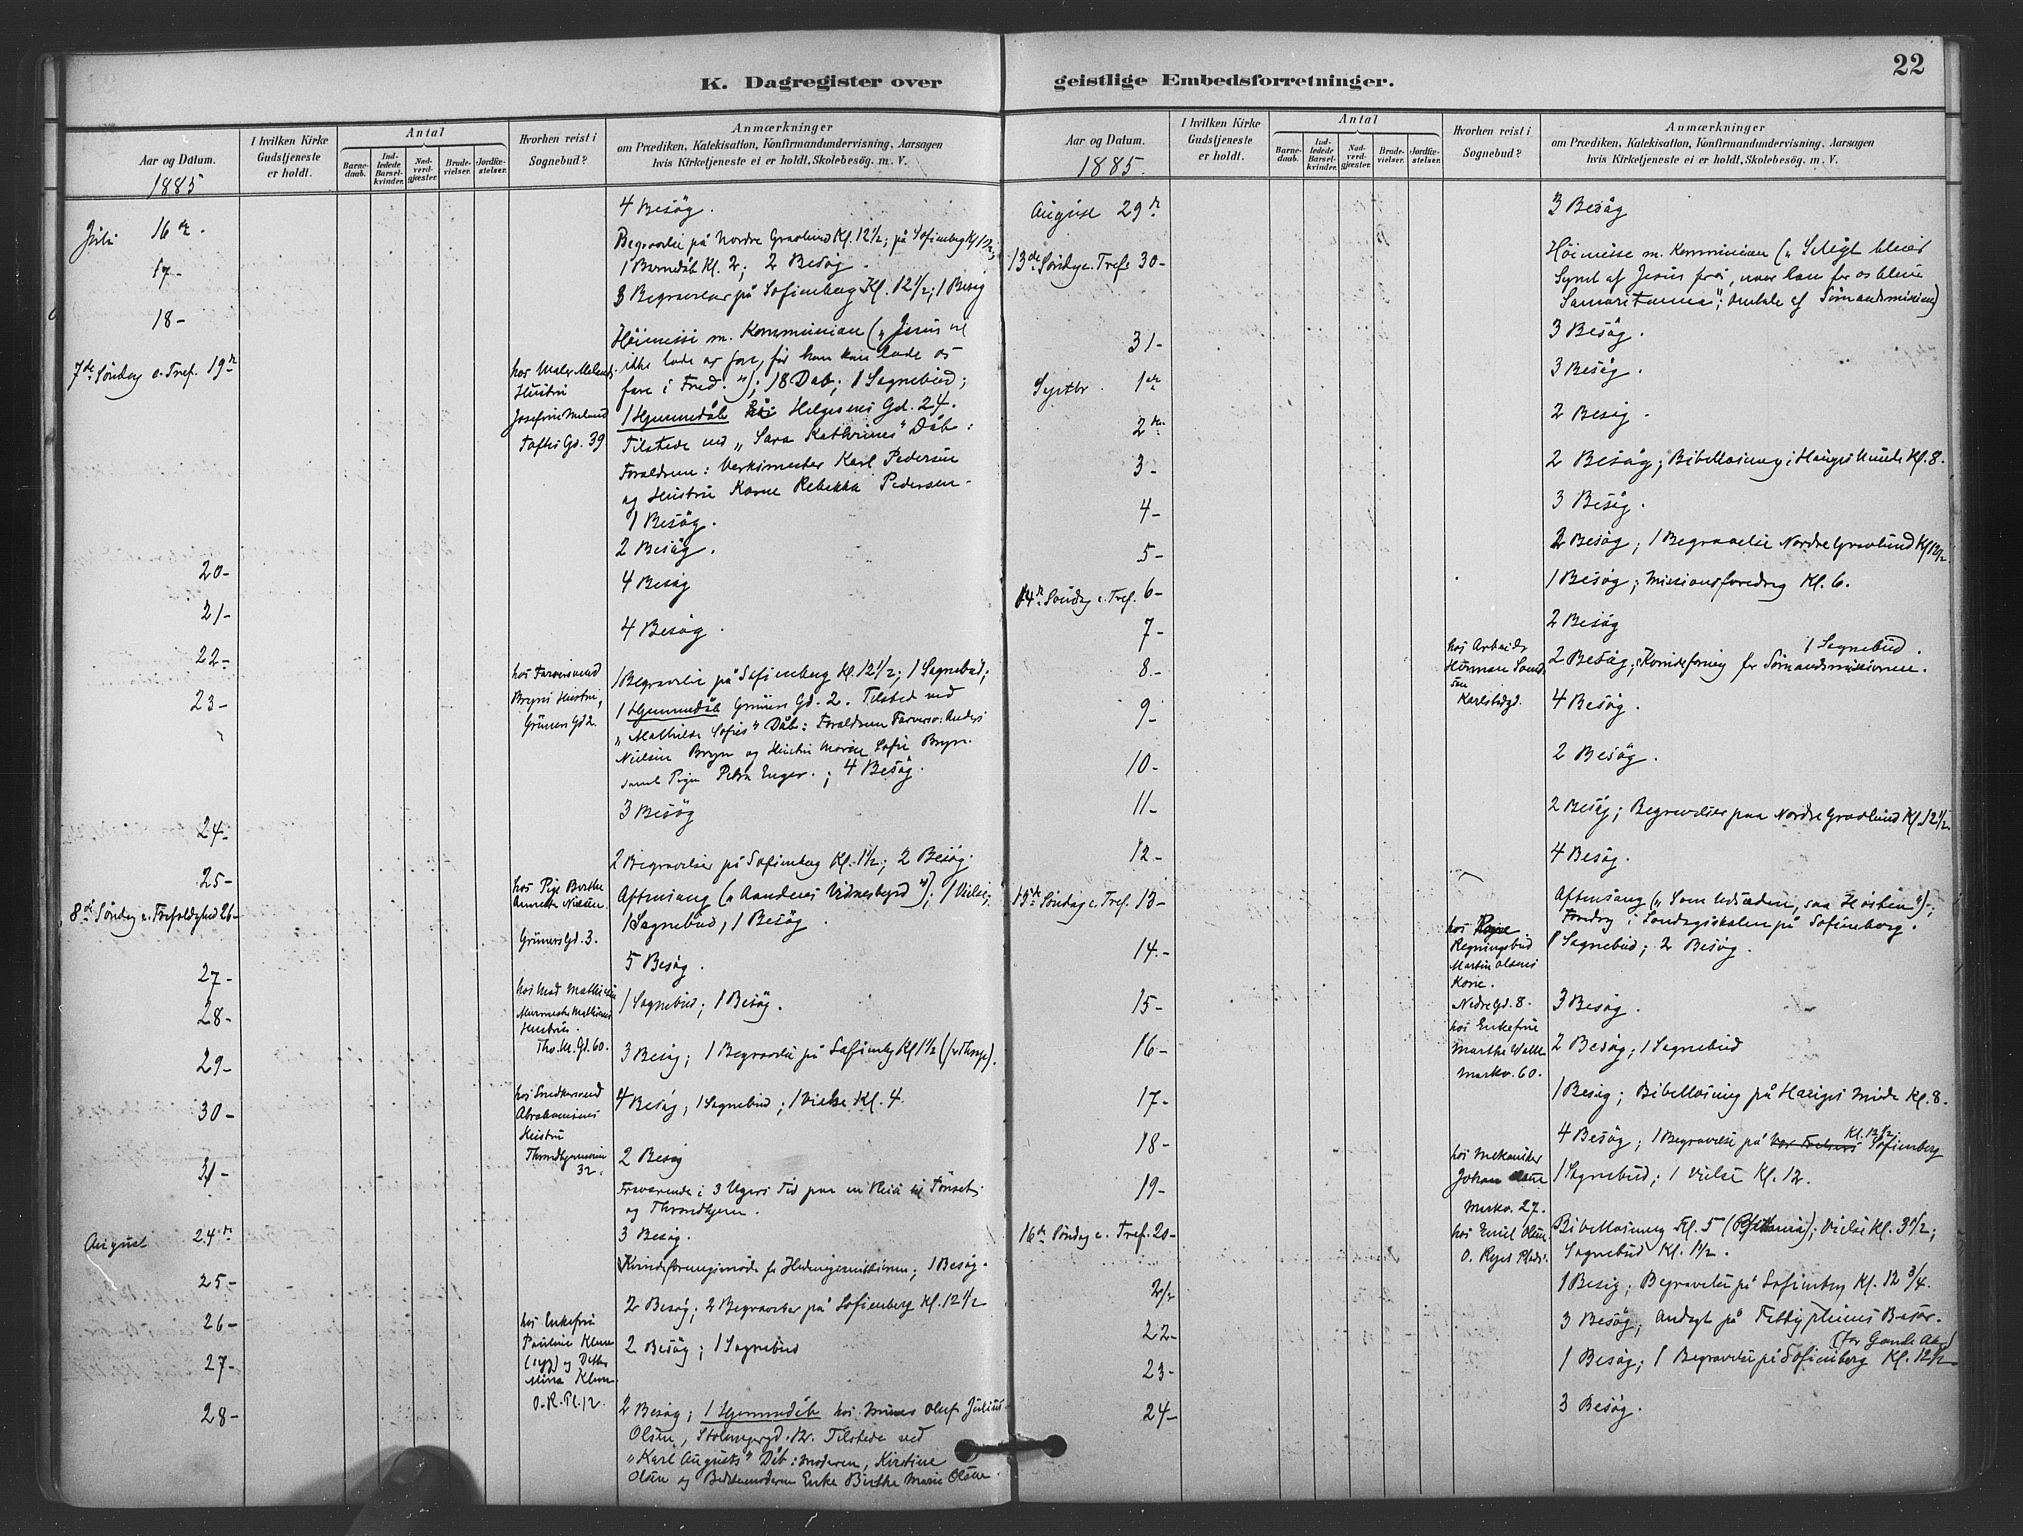 22
K. Dagregister over
geistlige Embedsforretninger.
Aar og Datum.
I hvilken Kirke Gudstjeneste er holdt.
Antal
Barne-daab.
Ind-ledede Barsel-kvinder.
Nad-verd-gjæster.
Brude-vielser.
Jordfæ-stelser.
Hvorhen reist i Sognebud?
Anmærkninger
om Prædiken, Katekisation, Konfirmandundervisning, Aarsagen
hvis Kirketjeneste ei er holdt, Skolebesög. m. V.
1885
4 Besøg.
Juli 16de.
Begravelse på Nordre Gravlund Kl. 12 1/2; på Sofienberg Kl 1 1/2;
17-
1 Barnedåb Kl. 2; 2 Besøg.
3 Begravelser på Sofienberg Kl. 12 1/2; 1 Besøg
18-
Høimesse m. Kommunion („Jesus vil
7de Søndag e. Tref. 19de
ikke lade os fare, før han kan lade os
fare i Fred."); 18 Dåb; 1 Sognebud;
Hustru
1 Hjemmedåb hos Helgesens Gd. 24.
Josefine Meland
Tilstede ved „Sara Kathrines" Dåb:
Toftes Gd. 39
Forældrene: Værksmester Karl Pedersen
og Hustru Karne Rebekka Pedersen.
1 Besøg.
2 Besøg.
20-
4 Besøg
21-
4 Besøg.
22-
hos Farversvend
1 Begravelse på Sofienberg Kl. 12 1/2; 1 Sognebud;
Bryns Hustru,
23-
1 Hjemmedåb Grüners Gd. 2. Tilsted ved
Grüners Gd 2.
„Mathilde Sofies" Dåb: Forældrene Farversv. Anders
Nielsen Bryn og Hustru Marie Sofie Bryn.
samt Pige Petra Enger.; 4 Besøg.
3 Besøg
24-
2 Begravelser på Sofienberg Kl. 1 1/2; 2 Besøg.
25-
hos Pige Berthe
Annette Nielsen.
Aftensang („Aandens Vidnesbyrd"); 1 Vielse;
8de Søndag e. Trefoldighed 26-
1 Sognebud, 1 Besøg.
Grüners Gd. 3.
5 Besøg.
27-
1 Sognebud; 1 Besøg.
28-
Hustru.
Tho. M. Gd. 60.
3 Besøg; 1 Begravelse på Sofienbg Kl 1 1/2
29-
hos Snedkersvend
4 Besøg; 1 Sognebud; 1 Vielse Kl. 4.
30-
Abrahamsens
Hustru
Throndhjemsvein
32.
2 Besøg
31-
Fraværende i 3 Ugers Tid paa en Reise til Tønset
og Throndhjem.
August 24de
3 Besøg.
Kvindeforeningsmøde for Hedningemissionen; 1 Besøg.
25-
2 Besøg; 2 Begravelser på Sofienberg Kl. 12 1/2
26-
hos Enkefru
Pauline Klem
2 Besøg; 1 Sognebud
27-
(syg) og Datter
Mina Klem
O. R. Pl. 12.
28-
2 Besøg; 1 Hjemmedåb hos Murer Oluf Julius
Olsen, Stolmagergd. 12. Tilstede ved
„Karl Augusts" Dåb: Moderen, Kirstine
Olsen og Bedstemoderen Enke Birthe Marie Olsen.
Aar og Datum.
I hvilken Kirke Gudstjeneste er holdt.
Antal
Barne-daab.
Ind-ledede Barsel-kvinder.
Nad-verd-gjæster.
Brude-vielser.
Jordfæ-stelser.
Hvorhen reist i Sognebud?
Anmærkninger
om Prædiken, Katekisation, Konfirmandundervisning, Aarsagen
hvis Kirketjeneste ei er holdt, Skolebesög. m. V.
1885.
August 29de
3 Besøg
13de Søndag e. Tref. 30-
Høimesse m. Kommunion („Saligt blev
Synet af Jesus først, naar han for os bliver
Samaritanen"; Omtale af Sømandsmissionen)
31-
3 Besøg.
3 Besøg.
Septbr. 1ste
2 Besøg.
2den
3-
2 Besøg; Bibellæsning i Hauges Minde Kl. 8.
4-
3 Besøg.
5-
2 Besøg; 1 Begravelse Nordre Gravlund Kl 12 1/2
14de Søndag e. Tref. 6-
1 Besøg; Missionsforedrag Kl. 6.
7-
2 Besøg
hos Arbeider
1 Sognebud.
8-
Herman
2 Besøg; Kvindeforening for Sømandsmissionen.
Karlstadgd.
9-
4 Besøg.
10-
2 Besøg.
11-
2 Besøg; Begravelser paa Nordre Gravlund Kl. 12 1/2
12-
4 Besøg.
15de Søndag e. Tref. 13-
Aftensang („Som Udsæden, saa Høsten");
Foredrag i Søndagsskolen på Sofienberg.
hos
Regningsbud
14-
1 Sognebud; 2 Besøg.
Martin Olsens
Kone.
Nedre Gd. 8.
15-
3 Besøg.
hos Enkefru
16-
Marthe
2 Besøg; 1 Sognebud
Markv. 60.
17-
1 Besøg; Bibellæsning på Hauges Minde Kl. 8.
18-
4 Besøg; 1 Begravelse på Vor Frelsers Sofienberg Kl. 12 1/2.
hos Mekaniker
Johan
19-
1 Sognebud; 1 Vielse Kl. 12.
Markv. 27.
16de Søndag e. Tref. 20-
hos Emil Olsen
Bibellæsning Kl. 5 (Bethania); Vielse Kl. 3 1/2;
O. Ryes Plads.
Sognebud Kl. 1 1/2.
21-
1 Besøg; Begravelse på Sofienberg Kl. 12 3/4.
22-
3 Besøg; Andagt på Fattigpleiens Basar.
(for Gamle Aker)
23-
1 Besøg; 1 Begravelse på Sofienberg Kl. 12 1/2
24-
3 Besøg.